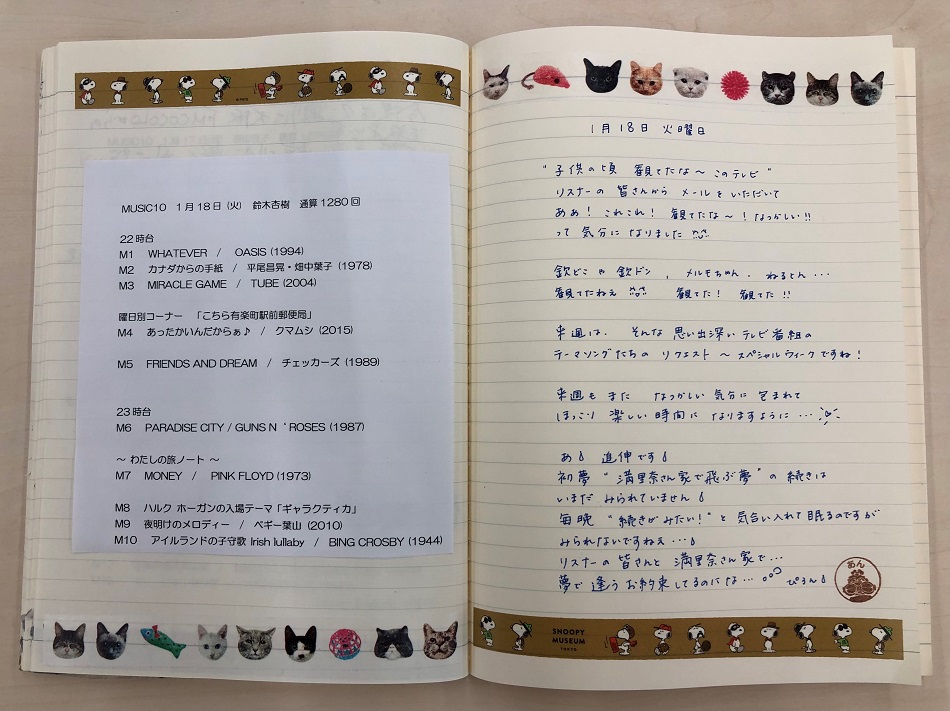 MUSIC10　1月18日（火）　鈴木杏樹　通算1280回
22時台
M1　WHATEVER　/　OASIS (1994)
M2　カナダからの手紙　/　平尾昌晃・畑中葉子 (1978)
M3　MIRACLE GAME　/　TUBE (2004)
曜日別コーナー　「こちら有楽町駅前郵便局」
M4　あったかいんだからぁ♪　/　クマムシ (2015)
M5　FRIENDS AND DREAM　/　チェッカーズ (1989)
23時台
M6　PARADISE CITY / GUNS N ' ROSES (1987)
～ わたしの旅ノート ～
M7　MONEY　/　PINK FLOYD (1973)
M8　ハルク ホーガンの入場テーマ「ギャラクティカ」
M9　夜明けのメロディー　/　ペギー葉山 (2010)
M10　アイルランドの子守歌 Irish lullaby　/　BING CROSBY (1944)
1月18日 火曜日
"子供の頃 観てたな～このテレビ"
リスナーの皆さんから メールをいただいて
ああ! これこれ! 観てたな～! なつかしい!!
って 気分に なりました
欽どこ や 欽ドン, メルモちゃん. ねるとん...
観てたねぇ 観てた! 観てた!!
来週は. そんな 思い出深い テレビ番組の
テーマソングたちの リクエスト～スペシャルウィークですね!
来週も また なつかしい 気分に 包まれて
ほっこり 楽しい 時間に なりますように...
あ! 追伸です!
初夢 "満里奈さん家で飛ぶ夢" の 続きは
いまだ みられていません!
毎晩 "続きがみたい!" と 気合い入れて 眠るのですが
みられないですねぇ...!
リスナーの 皆さんと 満里奈さん家で...
夢で 逢う お約束してるのになぁ... ぴろん!
あん
SNOOPY
MUSEUM
TOKYO